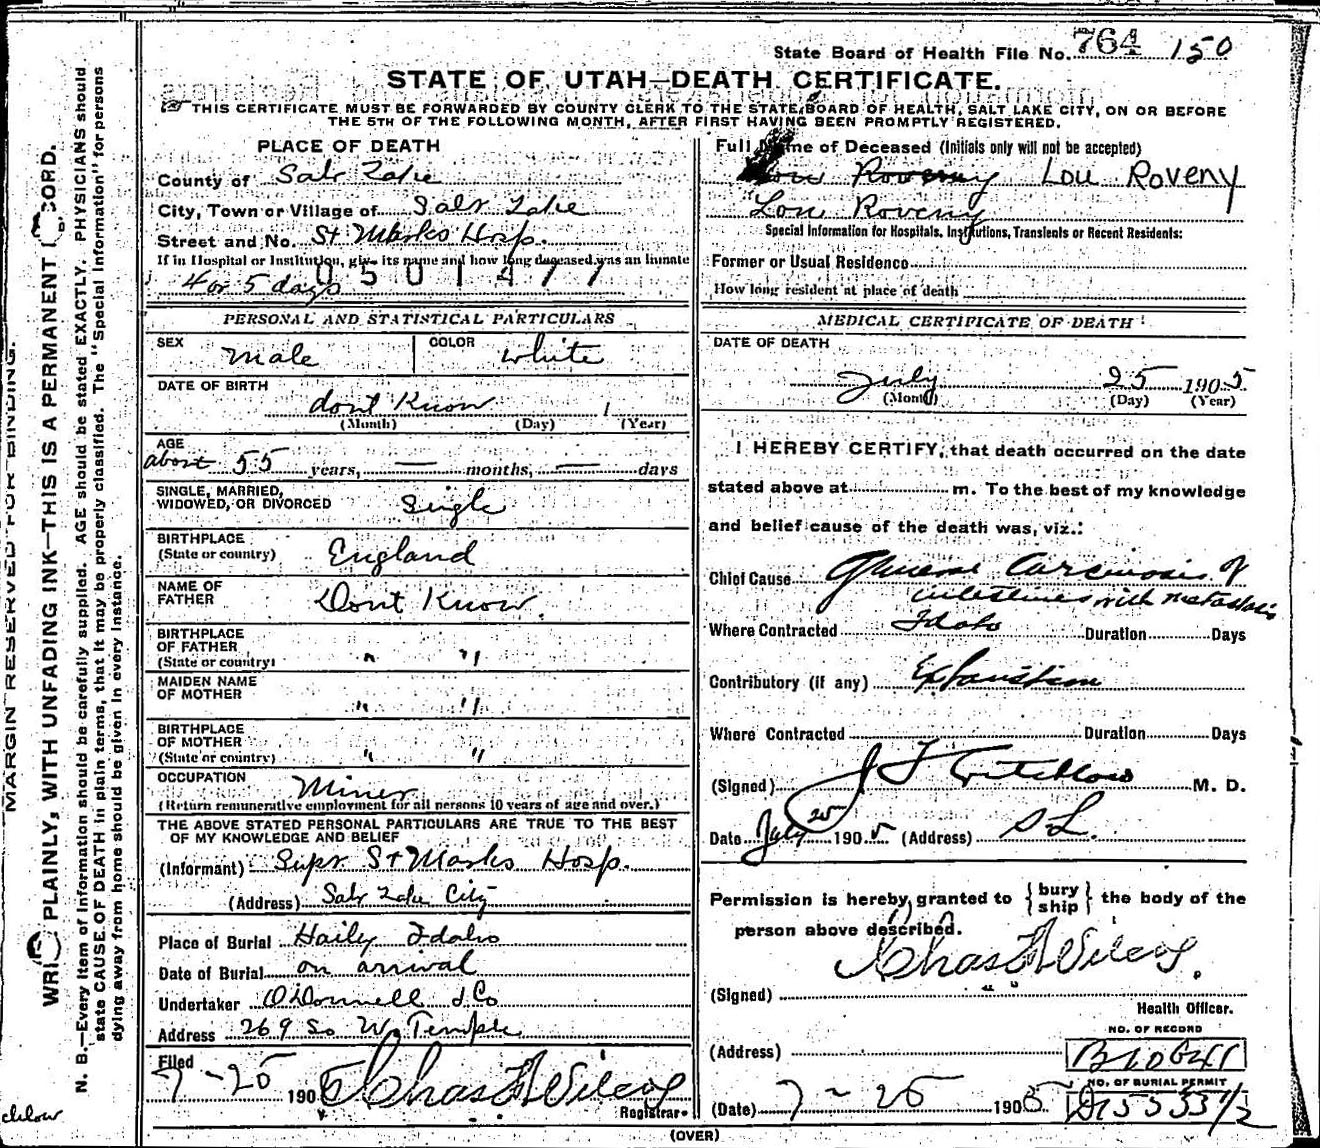 State Board of Health File No. 764 150
STATE OF UTAH—DEATH CERTIFICATE.
THIS CERTIFICATE MUST BE FORWARDED BY COUNTY CLERK TO THE STATE BOARD OF HEALTH, SALT LAKE CITY, ON OR BEFORE
THE 5TH OF THE FOLLOWING MONTH, AFTER FIRST HAVING BEEN PROMPTLY REGISTERED.
MARGIN RESERVED FOR BINDING.
PLAINLY, WITH UNFADING INK—THIS IS A PERMANENT
N. B.—Every item of information should be carefully supplied. AGE should be stated EXACTLY. PHYSICIANS should
state CAUSE OF DEATH in plain terms, that it may be properly classified. The "Special Information" for persons
dying away from home should be given in every instance.
PLACE OF DEATH
County of Salt Lake
City, Town or Village of Salt Lake
Street and No. St Marks Hosp.
If in Hospital or Institution, give its name and how long deceased was an inmate
0501477
4 or 5 days
PERSONAL AND STATISTICAL PARTICULARS
SEX Male COLOR White
DATE OF BIRTH
dont Know
(Month) (Day) (Year)
AGE
about 55 years, — months, — days
SINGLE, MARRIED,
WIDOWED, OR DIVORCED Single
BIRTHPLACE
(State or country) England
NAME OF
FATHER Dont Know
BIRTHPLACE
OF FATHER
(State or country) " "
MAIDEN NAME
OF MOTHER " "
BIRTHPLACE
OF MOTHER
(State or country) " "
OCCUPATION Miner
(Return remunerative employment for all persons 10 years of age and over.)
THE ABOVE STATED PERSONAL PARTICULARS ARE TRUE TO THE BEST
OF MY KNOWLEDGE AND BELIEF
(Informant) Supr St Marks Hosp.
(Address) Salt Lake City
Place of Burial Haily Idaho
Date of Burial on arrival
Undertaker O'Donnell & Co
Address 269 So W. Temple
Filed
7-25 1905 Chas F Wilcox
Registrar.
Full Name of Deceased (Initials only will not be accepted)
Lou Roveny Lou Roveny
Lou Roveny
Special Information for Hospitals, Institutions, Transients or Recent Residents:
Former or Usual Residence
How long resident at place of death
MEDICAL CERTIFICATE OF DEATH
DATE OF DEATH
July 25 1905
(Month) (Day) (Year)
I HEREBY CERTIFY, that death occurred on the date
stated above at m. To the best of my knowledge
and belief cause of the death was, viz.:
Chief Cause General Carcinosis of
intestines with metastasis
Where Contracted Idaho Duration Days
Contributory (if any) Exhaustion
Where Contracted Duration Days
(Signed) J F Critchlow M. D.
Date July 25 1905 (Address) S L.
Permission is hereby granted to { bury ship } the body of the
person above described.
Chas F Wilcox.
(Signed)
Health Officer.
NO. OF RECORD
(Address)
NO. OF BURIAL PERMIT
(Date) 7-25 1905
(OVER)